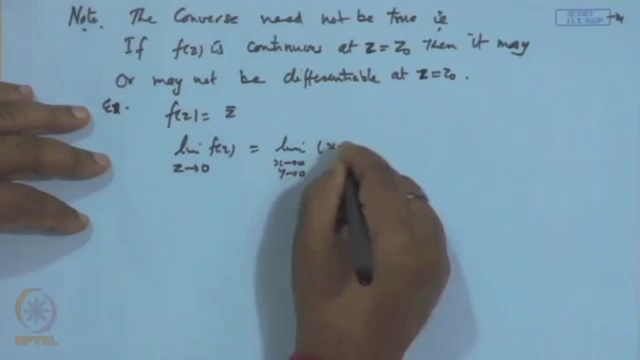 Note. The Converse need not be true ie
If f(z) is continuous at z=z₀ then it may
Or may not be differentiable at z=z₀.
Ex. f(z) = z̄
lim f(z) = lim (x
z→0 x→0
y→0
NPTEL